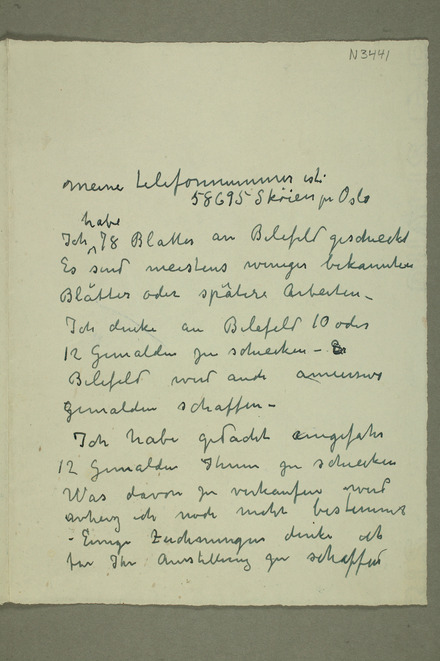 N3441
meine telefonnummer ist:
58695 Sköien pr Oslo
habe
Ich 78 Blatter an Bilefeld geschickt
Es sind meistens weniger bekannten
Blätter oder spätere Arbeiten -
Ich denke an Bilefeld 10 oder
12 Gemalden zu schicken -
Bilefeld wird
Gemalden schaffen -
Ich habe gedacht ungefahr
12 Gemalden Ihnen zu schicken
Was davon zu verkaufen wird
ich noch nicht bestimmt
- Einige Zeichnungen denke ich
fur Ihr Ausstellung zu schaffen